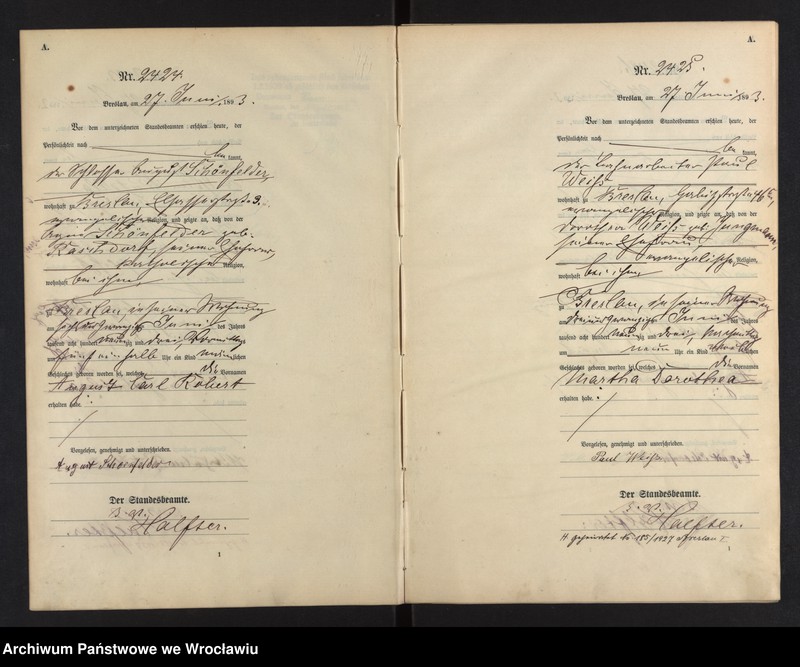 A.
Nr. 2424.
Breslau, am 27. Juni 1893.
Vor dem unterzeichneten Standesbeamten erschien heute, der
Persönlichkeit nach
be kannt,
der Schlosser August Schönfelder,
wohnhaft zu Breslau,
evangelischer Religion, und zeigte an, daß von der
Schönfelder geb.
seiner Ehefrau,
katholischer Religion,
wohnhaft bei ihm,
zu Breslau, in seiner Wohnung
am Juni des Jahres
tausend acht hundert neunzig und drei, Vormittags
um fünf ein halb Uhr ein Kind männlichen
Geschlechts geboren worden sei, welches die Vornamen
August Carl Robert
erhalten habe.
Vorgelesen, genehmigt und unterschrieben.
August Schoenfelder
Der Standesbeamte.
Halfter.
1
A.
Nr. 2425.
Breslau, am 27 Juni 1893.
Vor dem unterzeichneten Standesbeamten erschien heute, der
Persönlichkeit nach
be kannt,
der Paul
Weiß
wohnhaft zu Breslau,
evangelischer Religion, und zeigte an, daß von der
Dorothea Weiß geb.
seiner Ehefrau,
evangelischer Religion,
wohnhaft bei ihm,
zu Breslau, in seiner Wohnung
am Juni des Jahres
tausend acht hundert neunzig und drei, Nachmittags
um neun Uhr ein Kind weiblichen
Geschlechts geboren worden sei, welches die Vornamen
Martha Dorothea
erhalten habe.
Vorgelesen, genehmigt und unterschrieben.
Paul Weiß
Der Standesbeamte.
Halfter.
1
Archiwum Państwowe we Wrocławiu